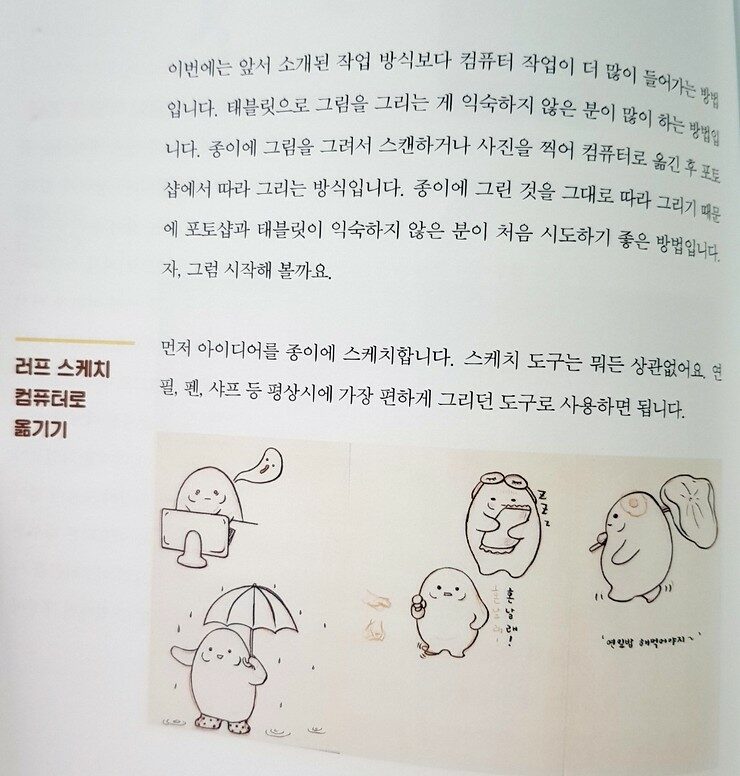 이번에는 앞서 소개된 작업 방식보다 컴퓨터 작업이 더 많이 들어가는 방법
입니다. 태블릿으로 그림을 그리는 게 익숙하지 않은 분이 많이 하는 방법입
니다. 종이에 그림을 그려서 스캔하거나 사진을 찍어 컴퓨터로 옮긴 후 포토
샵에서 따라 그리는 방식입니다. 종이에 그린 것을 그대로 따라 그리기 때문
에 포토샵과 태블릿이 익숙하지 않은 분이 처음 시도하기 좋은 방법입니다.
자, 그럼 시작해 볼까요.
러프 스케치
컴퓨터로
옮기기
먼저 아이디어를 종이에 스케치합니다. 스케치 도구는 뭐든 상관없어요. 연
필, 펜, 샤프 등 평상시에 가장 편하게 그리던 도구로 사용하면 됩니다.
ZZZ
혼날래!
혼날래!
'연잎밥 해먹어야지~'